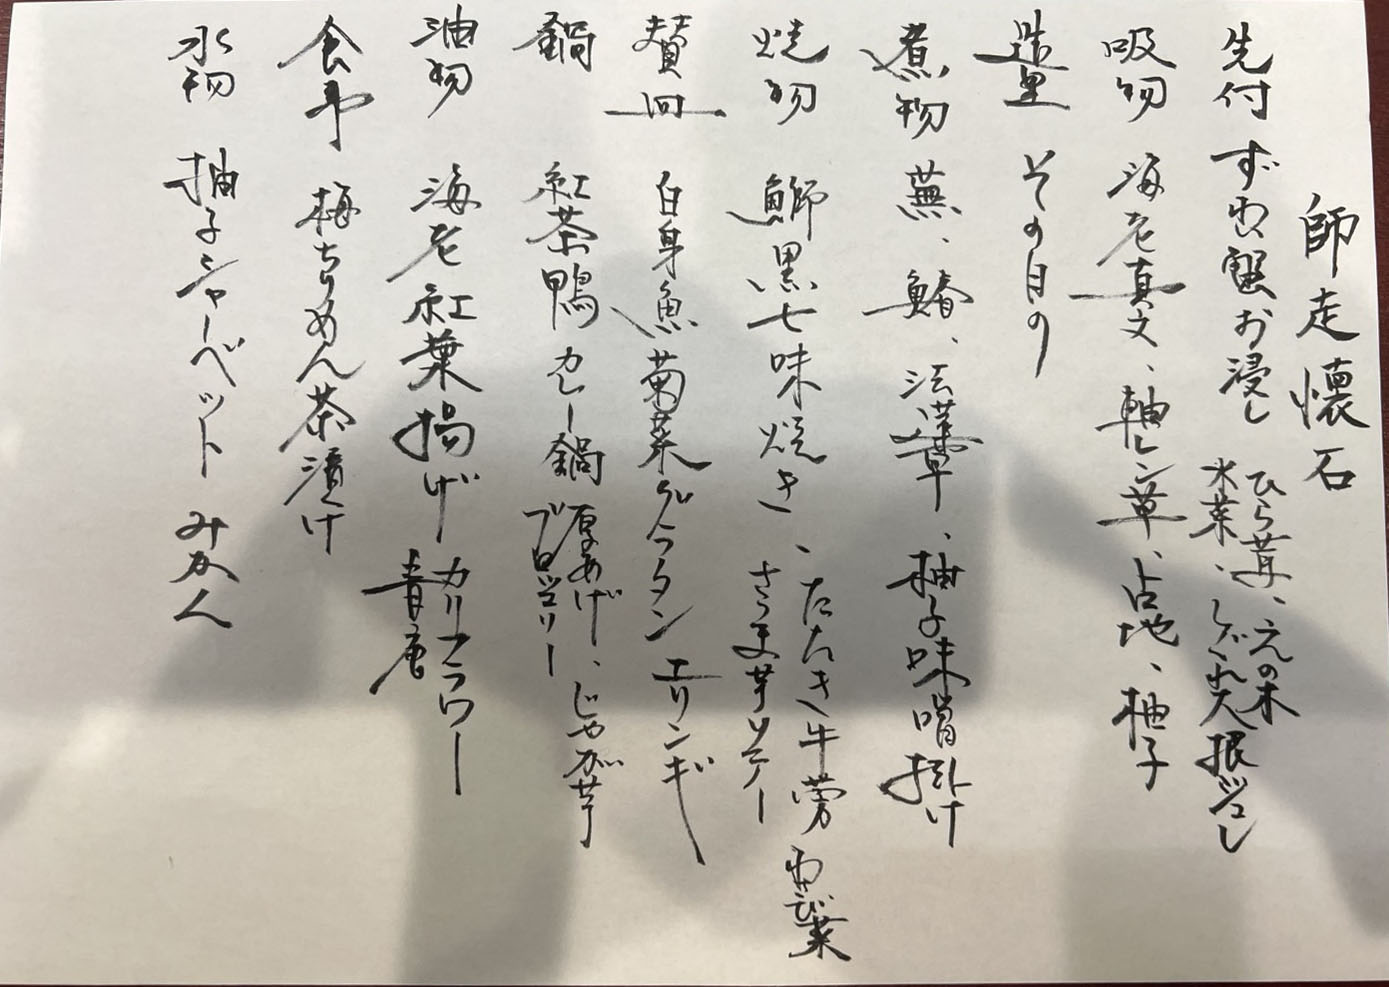 師走懐石
先付 ずわい蟹お浸し ひら茸、えの木
水菜、しぐれ大根ジュレ
吸物 海老真丈、軸レン草、占地、柚子
造里 その日の
煮物 蕪、鰆、法蓮草、柚子味噌掛け
焼物 鰤黒七味焼き、たたき牛蒡 わさび菜
さつま芋ソテー
賛皿 白身魚菊菜グラタン エリンギ
鍋 紅茶鴨カレー鍋 厚あげ、じゃが芋
ブロッコリー
油物 海老紅葉揚げ カリフラワー
青唐
食事 梅ちりめん茶漬け
水物 柚子シャーベット みかん